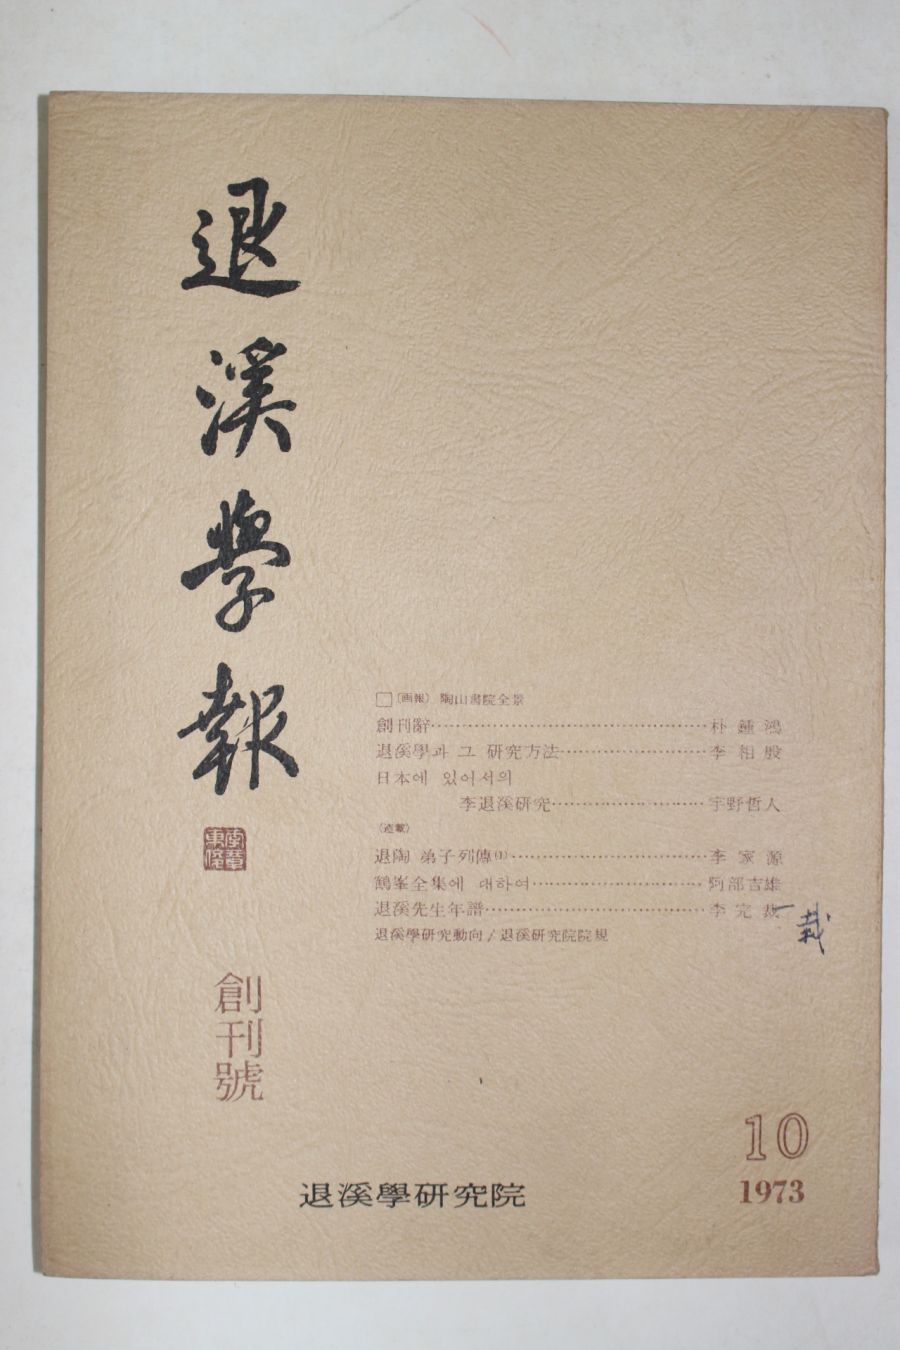 退溪學報
創刊號
□〔画報〕 陶山書院全景
創刊辭……朴鍾鴻
退溪學과 그 研究方法……李相殷
日本에 있어서의
李退溪研究……宇野哲人
〈連載〉
退陶 弟子列傳(1)……李家源
鶴峯全集에 대하여……阿部吉雄
退溪先生年譜……李完裁
栽
退溪學研究動向／退溪研究院院規
10
1973
退溪學研究院